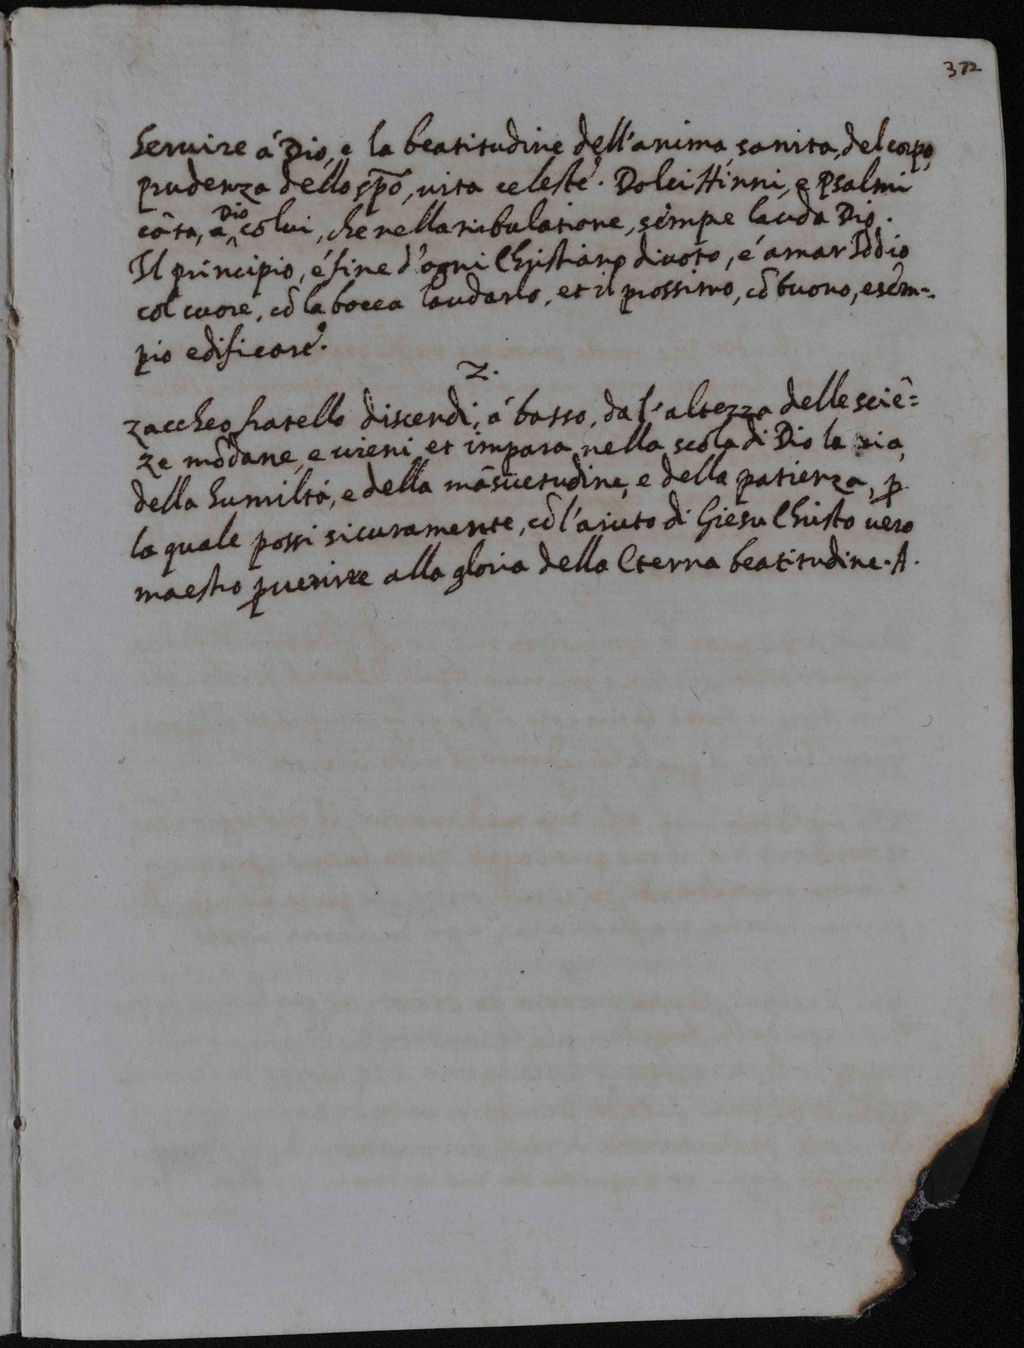 372
Seruire á Dio, e la beatitudine dell'anima, sanita, del corpo,
prudenza dello spõ, uita celeste. Dolci Hinni, e Psalmi
cãta, a Dio colui, che nella tribulatione, sẽmpe lauda Dio.
Il principio, é fine d'ogni Christiano diuoto, é amar Iddio
col cuore, cõ la bocca laudarlo, et il prossimo, cõ buono, esẽm-
pio edificare.
Z.
Zaccheo fratello discendi, á basso, da l'altezza delle sciẽ=
ze mõdane, e uieni, et impara nella scola di Dio la uia,
della humiltá, e della mãsuetudine, e della patienza, ꝑ
la quale possi sicuramente, cõ l'aiuto di Giesu Christo uero
maestro ꝑuenire alla gloria della Eterna beatitudine. A.